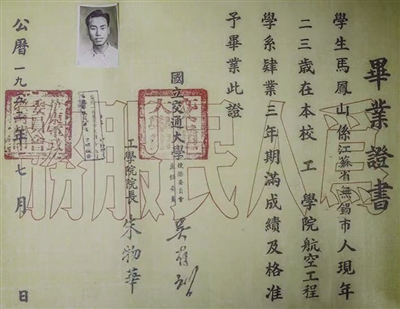 畢業證書
學生馬鳳山係江蘇省無錫市人現年
二三歲在本校工學院航空工程
學系肄業三年期滿成績及格准
予畢業此證
國立交通大學校務委員會
吳有訓
工學院院長 朱物華
公曆一九五年七月 日
為人民服務